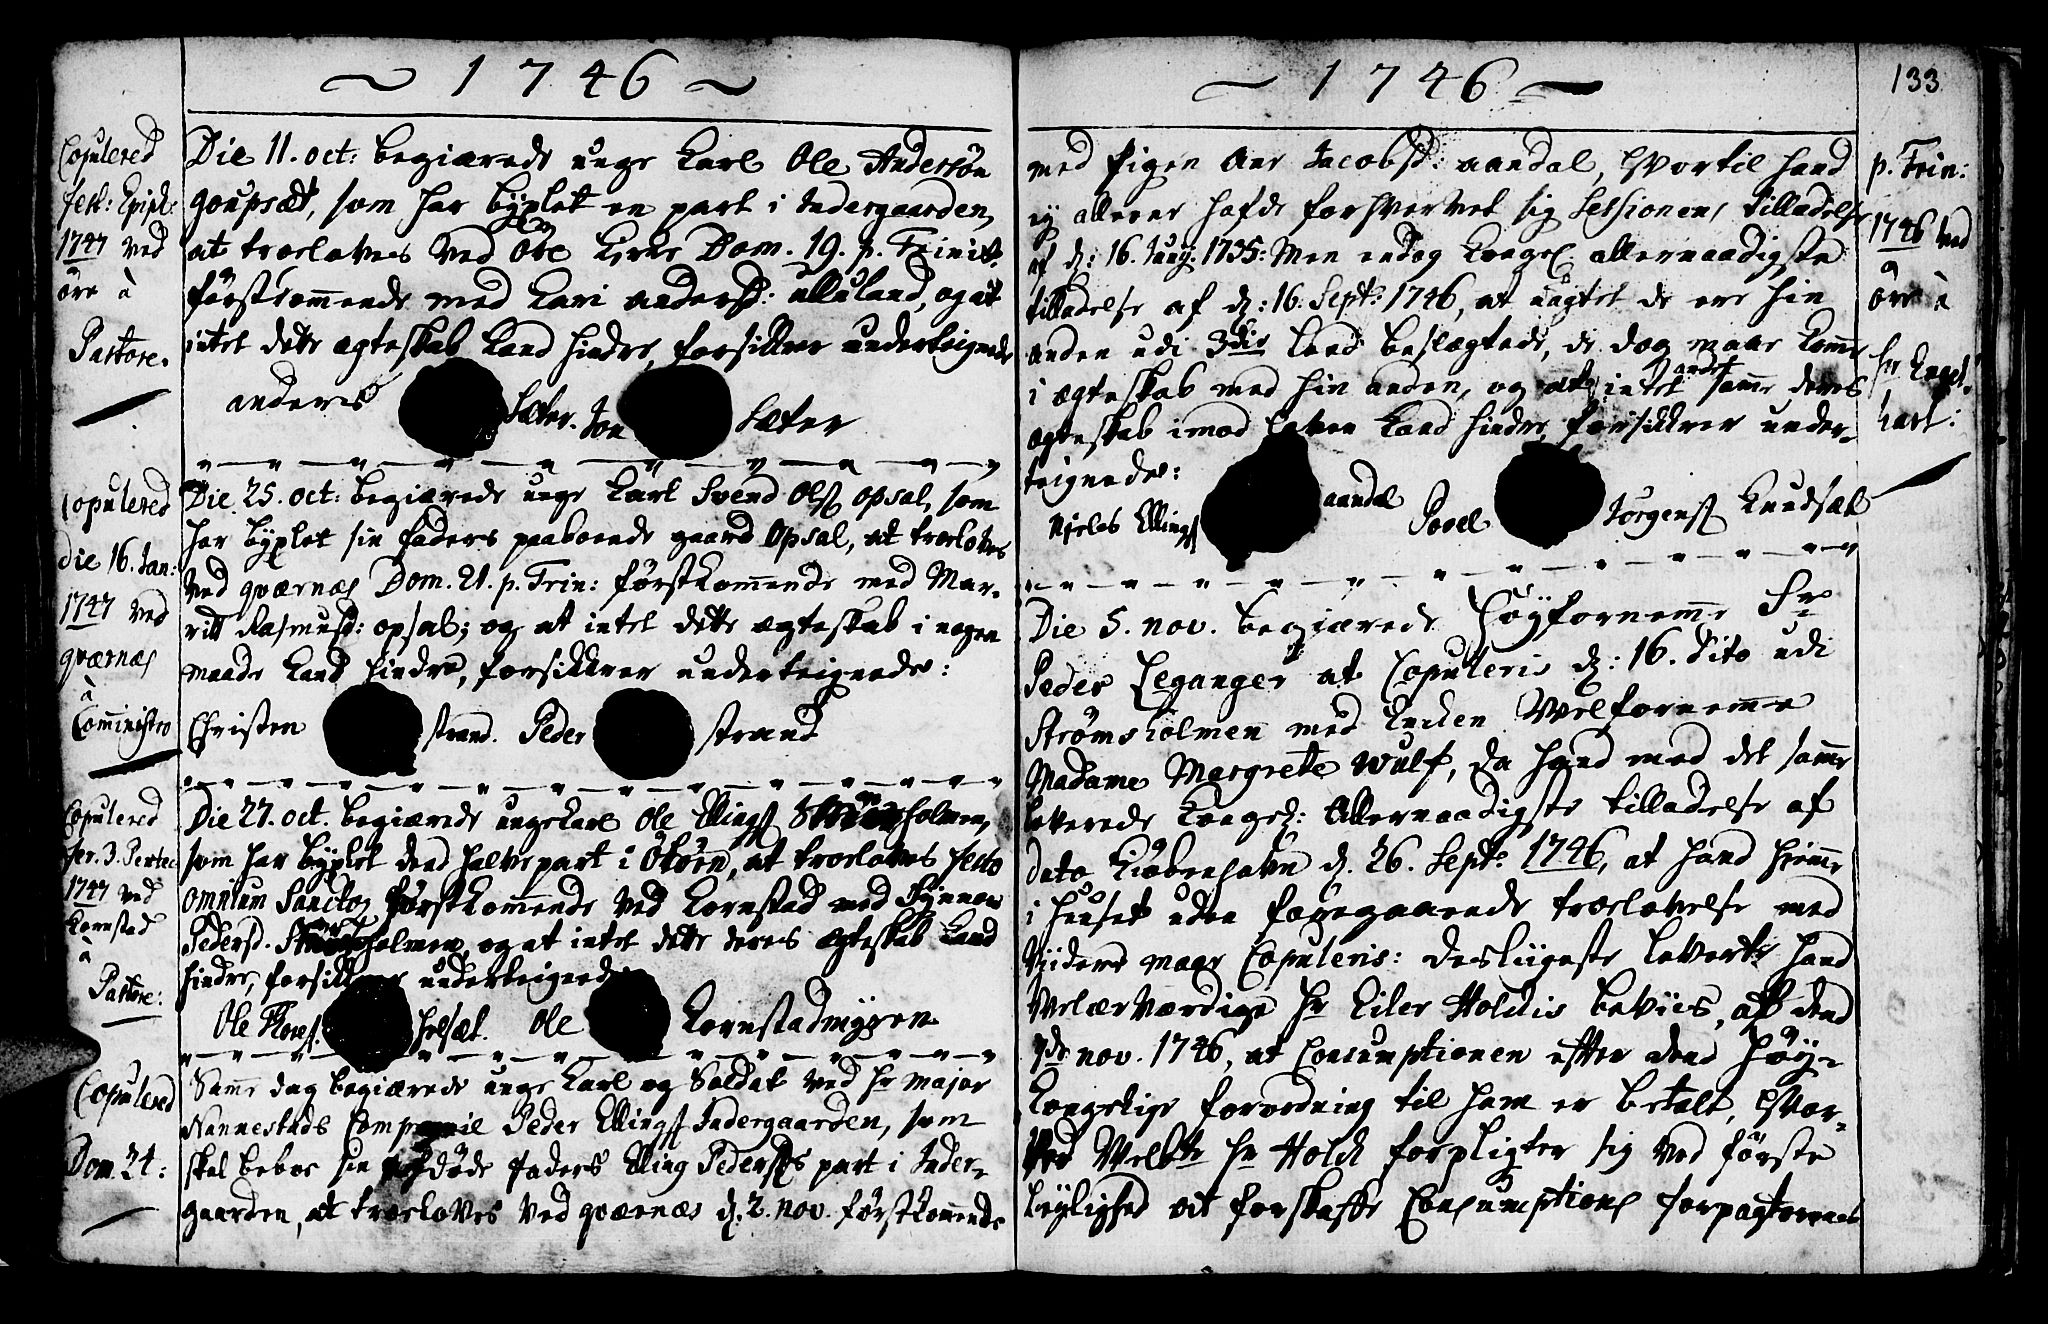 ~ 1746 ~
Copulered
fest: Epiph:
1747 ved
öre à
Pastore.
Die 11. oct: begiærede unge Karl Ole Andersön
goupsæt, som har byxlet en part i Indergaarden,
at troeloves ved Öre Kirke Dom. 19. p. Trinit.
förstkommende med Kari andersd: ulluland, og at
intet dette ægteskab kand hindre, forsikkrer underteignede
anders Sæter. Jon Sæter
Copulered
die 16. Jan:
1747 ved
qværnæs
à
Coministro
Die 25. oct: begiærede unge Karl Svend Ols opsal, som
har byxlet sin faders paaboende gaard Opsal, at troeloves
ved qværnæs Dom. 21. p. Trin: förstkommende med Mar-
ritt Rasmusd: opsal; og at intet dette ægteskab i nogen
maade kand hindre, forsikkrer underteignede:
Christen strand. Peder strand
Copulered
fer. 3. Pentec
1747 ved
Kornstad
à
Pastore.
Die 27. oct. begiærede unge Karl Ole Ellings holmen,
som har byxlet dend halve part i Ökören, at troeloves festo
omnium Sanctor förstkommende ved Kornstad med Synnove
Pedersd. holmen, og at intet dette deres ægteskab kand
hindre, forsikkrer underteignede
Ole Thores. Ole Kornstadmyren
Copulered
Dom. 24:
Samme dag begiærede unge Karl og Soldat ved Hr Major
Nannestads Compagnie Peder Ellings Indergaarden, som
skal beboe sin afdöde faders Elling Peders part i Inder-
gaarden, at troeloves ved qværnæs d. 2. nov. förstkommende
~ 1746 ~
133
med pigen Ane Jacobsd: aandal, hvortil hand
ey allene hafde forhvervet sig Sessionens tilladelse
af d: 16. Juny. 1735: Men endog Kongel. allernaadigste
tilladelse af d: 16. Sept: 1746, at uagtet de ere hin
anden udi 3die Leed beslægtede, de dog maae komme
i ægteskab med hin anden, og at intet andet samme deres
ægteskab imod Loven kand hindre, forsikkrer under-
teignede:
Niels Ellings aandal Povel Jörgens Knudsæt
p. Trin:
1746 ved
öre à
Hr Engel-
hart:
Die 5. nov. begiærede Höyfornemme Sr
Peder Leganger at Copuleris d: 16. dito udi
Strömsholmen med Enken Velfornemme
Madame Margrete Wulf, da hand med det samme
leverede Kongel: Allernaadigste tilladelse af
dato Kiöbenhavn d. 26. Sept: 1746, at hand hiemme
i huset uden foregaaende troelovelse med
Viidere maae Copuleris: desligeste leverte hand
Velærværdige Hr Eiler Holdts beviis, af dend
7de nov. 1746, at Consumptionen efter dend Höy-
Kongelige forordning til ham er betalt, hvor-
ved Velbte Hr Holdt forpligter sig ved förste
leylighed at forskaffe Consumptions forpagternes